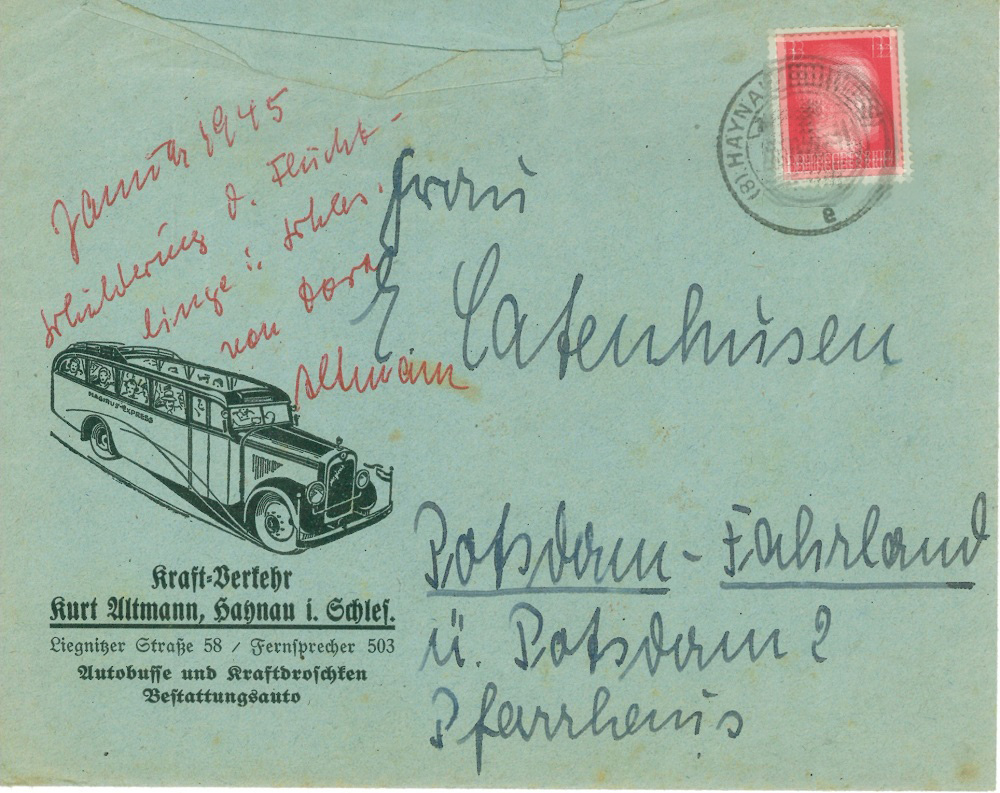 Januar 1945
Schilderung d. Flücht-
linge i. Schles.
von Dora
Altmann
(8) HAYNAU
e
Frau
E Catenhusen
Potsdam-Fahrland
ü. Potsdam 2
Pfarrhaus
MAGIRUS-EXPRESS
Kraft-Verkehr
Kurt Altmann, Haynau i. Schles.
Liegnitzer Straße 58 / Fernsprecher 503
Autobusse und Kraftdroschken
Bestattungsauto